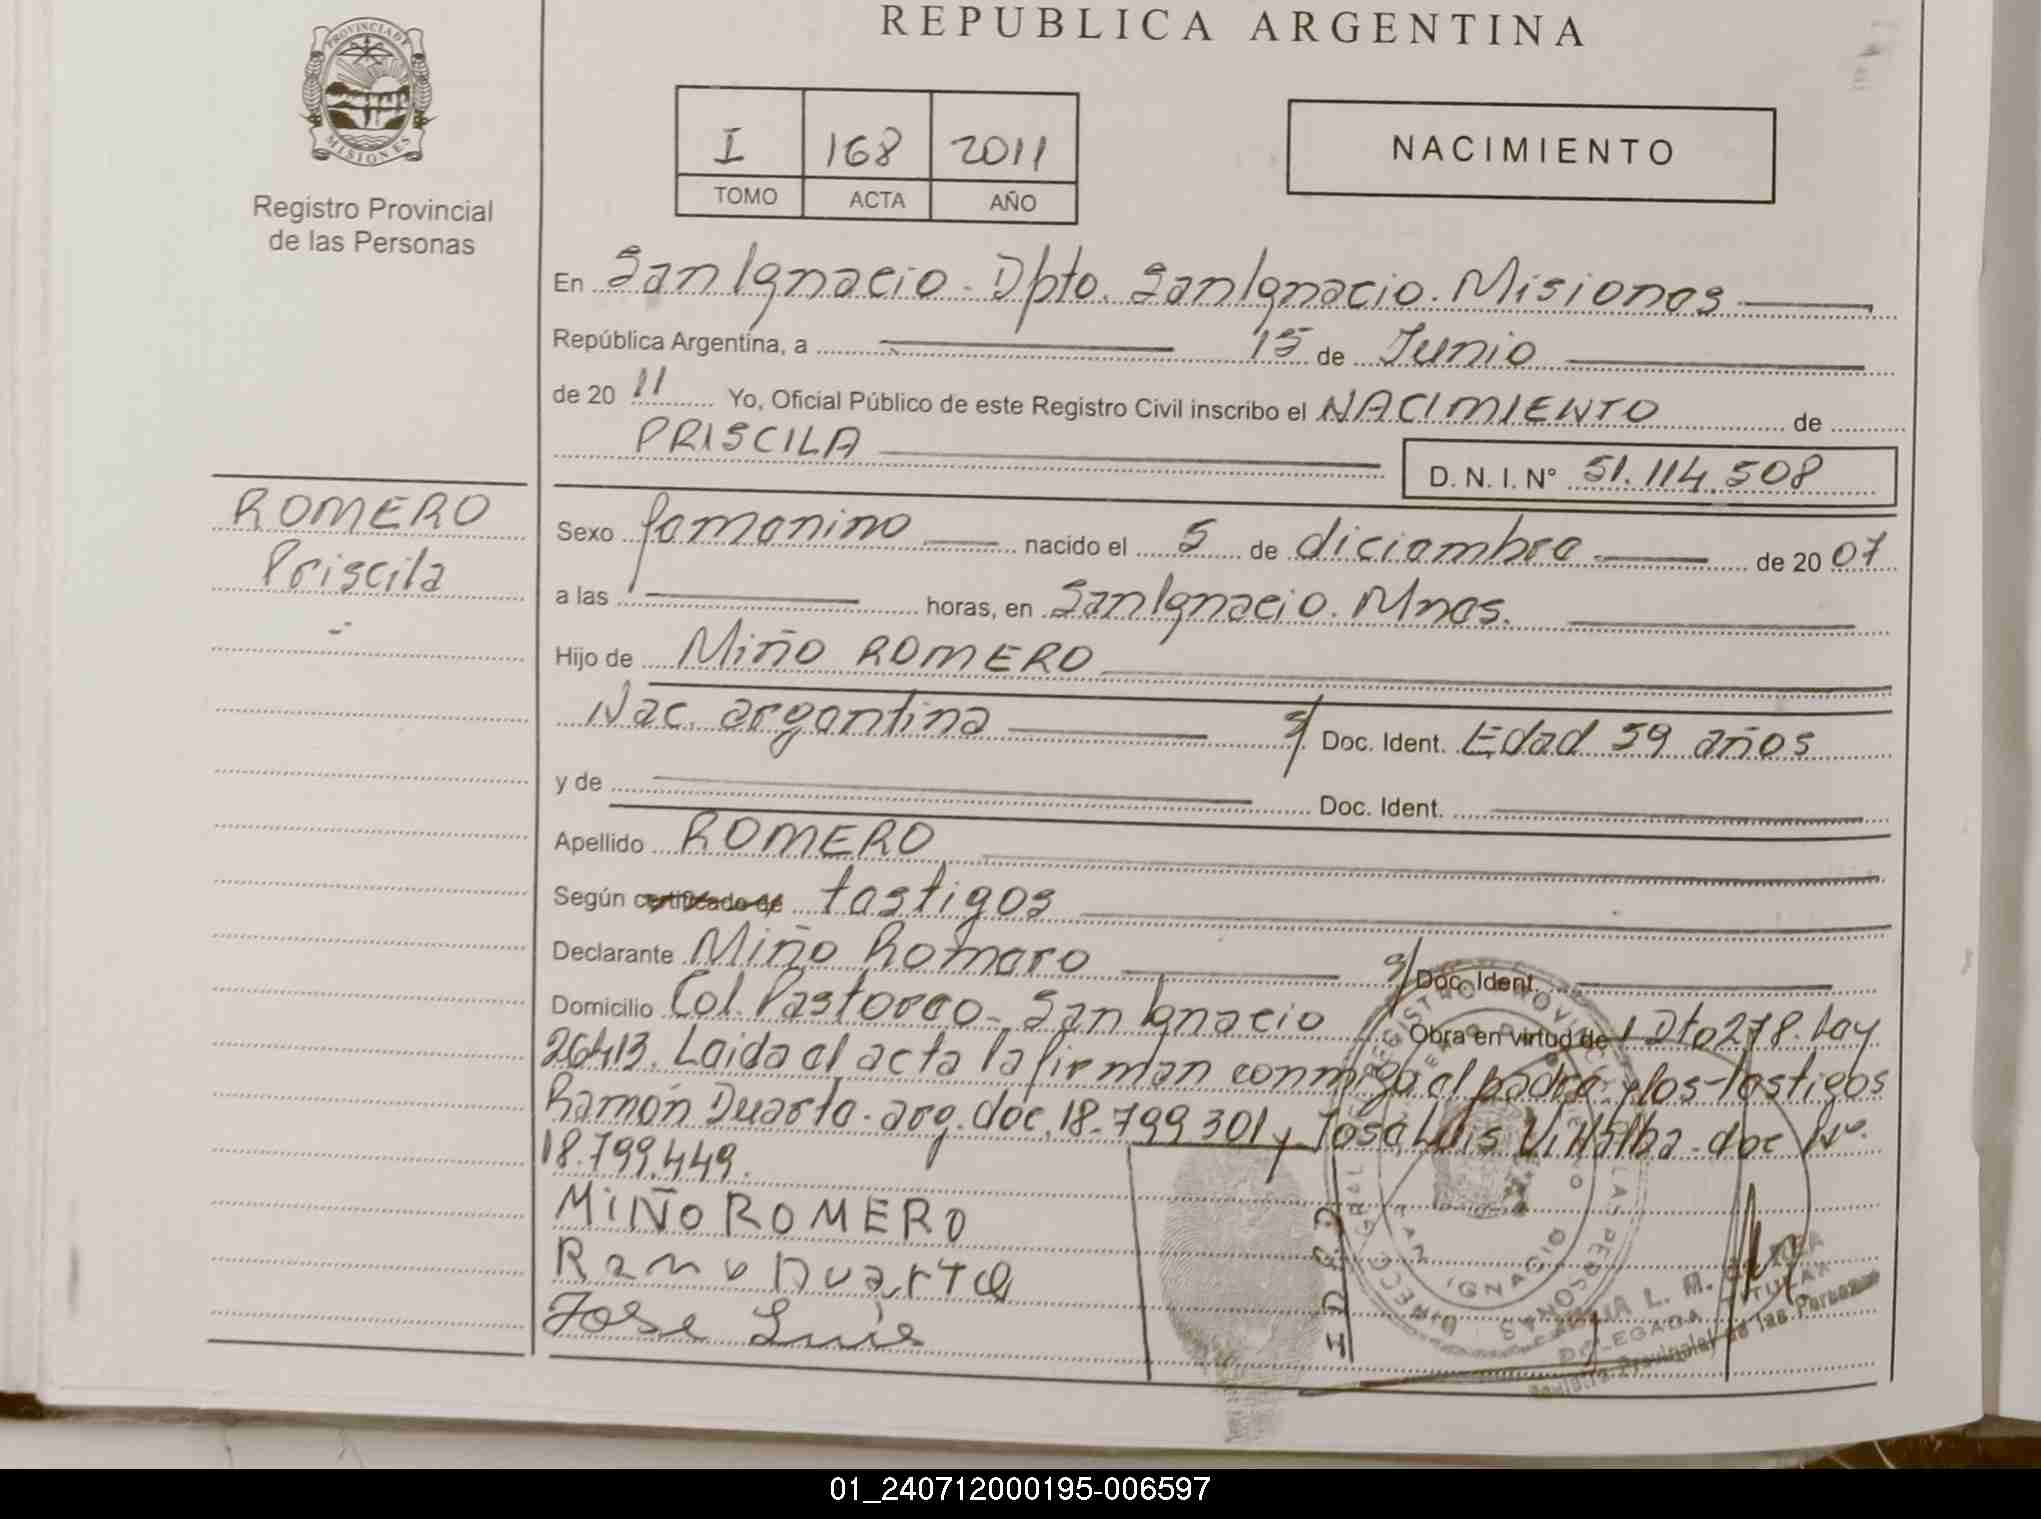 REPUBLICA ARGENTINA
PROVINCIA DE
MISIONES
Registro Provincial
de las Personas
I 168 2011
TOMO ACTA AÑO
NACIMIENTO
En San Ignacio. Dpto. San Ignacio. Misiones
República Argentina, a 15 de Junio
de 20 11 Yo, Oficial Público de este Registro Civil inscribo el NACIMIENTO de
PRISCILA D. N. I. N° 51.114.508
ROMERO
Priscila
Sexo femenino nacido el 5 de diciembre de 20 07
a las horas, en San Ignacio. Mnes.
Hijo de Miño ROMERO
Nac. argentina s/ Doc. Ident. Edad 59 años
y de Doc. Ident.
Apellido ROMERO
Según certificado de testigos
Declarante Miño Romero s/ Doc. Ident.
Domicilio Col. Pastoreo - San Ignacio Obra en virtud de Dto 278. Ley
26413. Leida el acta la firman conmigo el padre y los testigos
Ramón Duarte. arg. doc. 18.799301 y José Luis Villalba. doc Nº.
18.799.449.
MIÑO ROMERO
Ramo Duarte
Jose Luis
SAN IGNACIO
DELEGADA TITULAR
Registro Provincial de las Personas
01_240712000195-006597